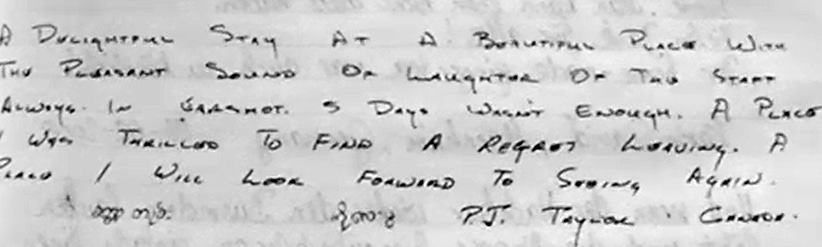 A DELIGHTFUL STAY AT A BEAUTIFUL PLACE WITH
THE PLEASANT SOUND OF LAUGHTER OF THE STAFF
ALWAYS IN EARSHOT. 5 DAYS WASN'T ENOUGH. A PLACE
I WAS THRILLED TO FIND & REGRET LEAVING. A
PLACE I WILL LOOK FORWARD TO SEEING AGAIN.
P.J. TAYLOR CANADA.